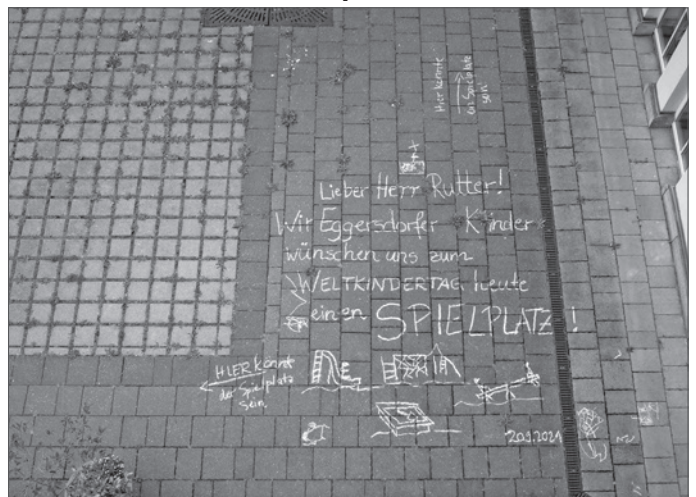 Hier könnte
ein Spielplatz
sein
Lieber Herr Rutter!
Wir Eggersdorfer Kinder
wünschen uns zum
WELTKINDERTAG heute
einen SPIELPLATZ!
HIER könnte
der Spielplatz
sein.
20.9.2021